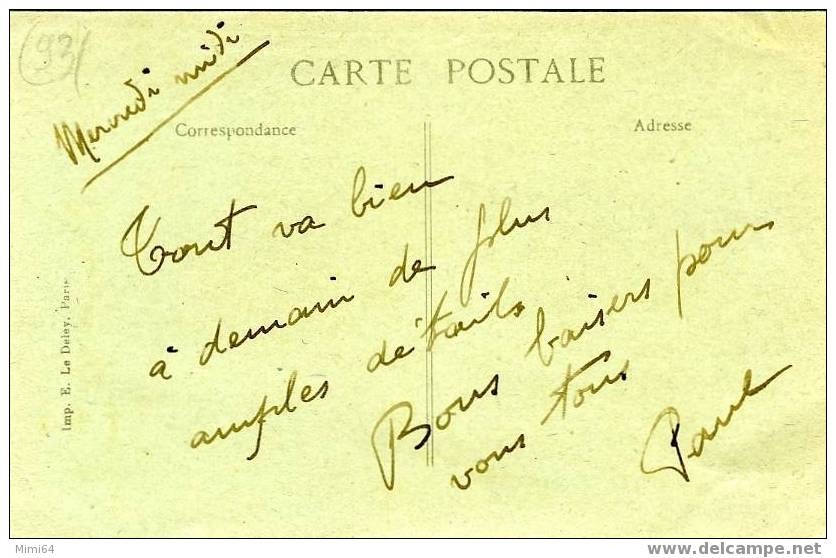 (93)
Mercredi midi
CARTE POSTALE
Correspondance
Adresse
Tout va bien
à demain de plus
amples détails
Bons baisers pour
vous tous
Paul
Imp. E. Le Deley, Paris
Mimi64
delcampe.net